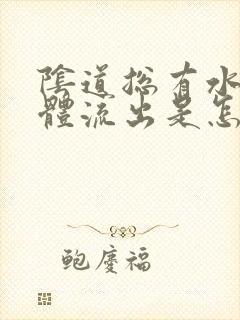 陰道總有水
體流出是怎
鲍慶福